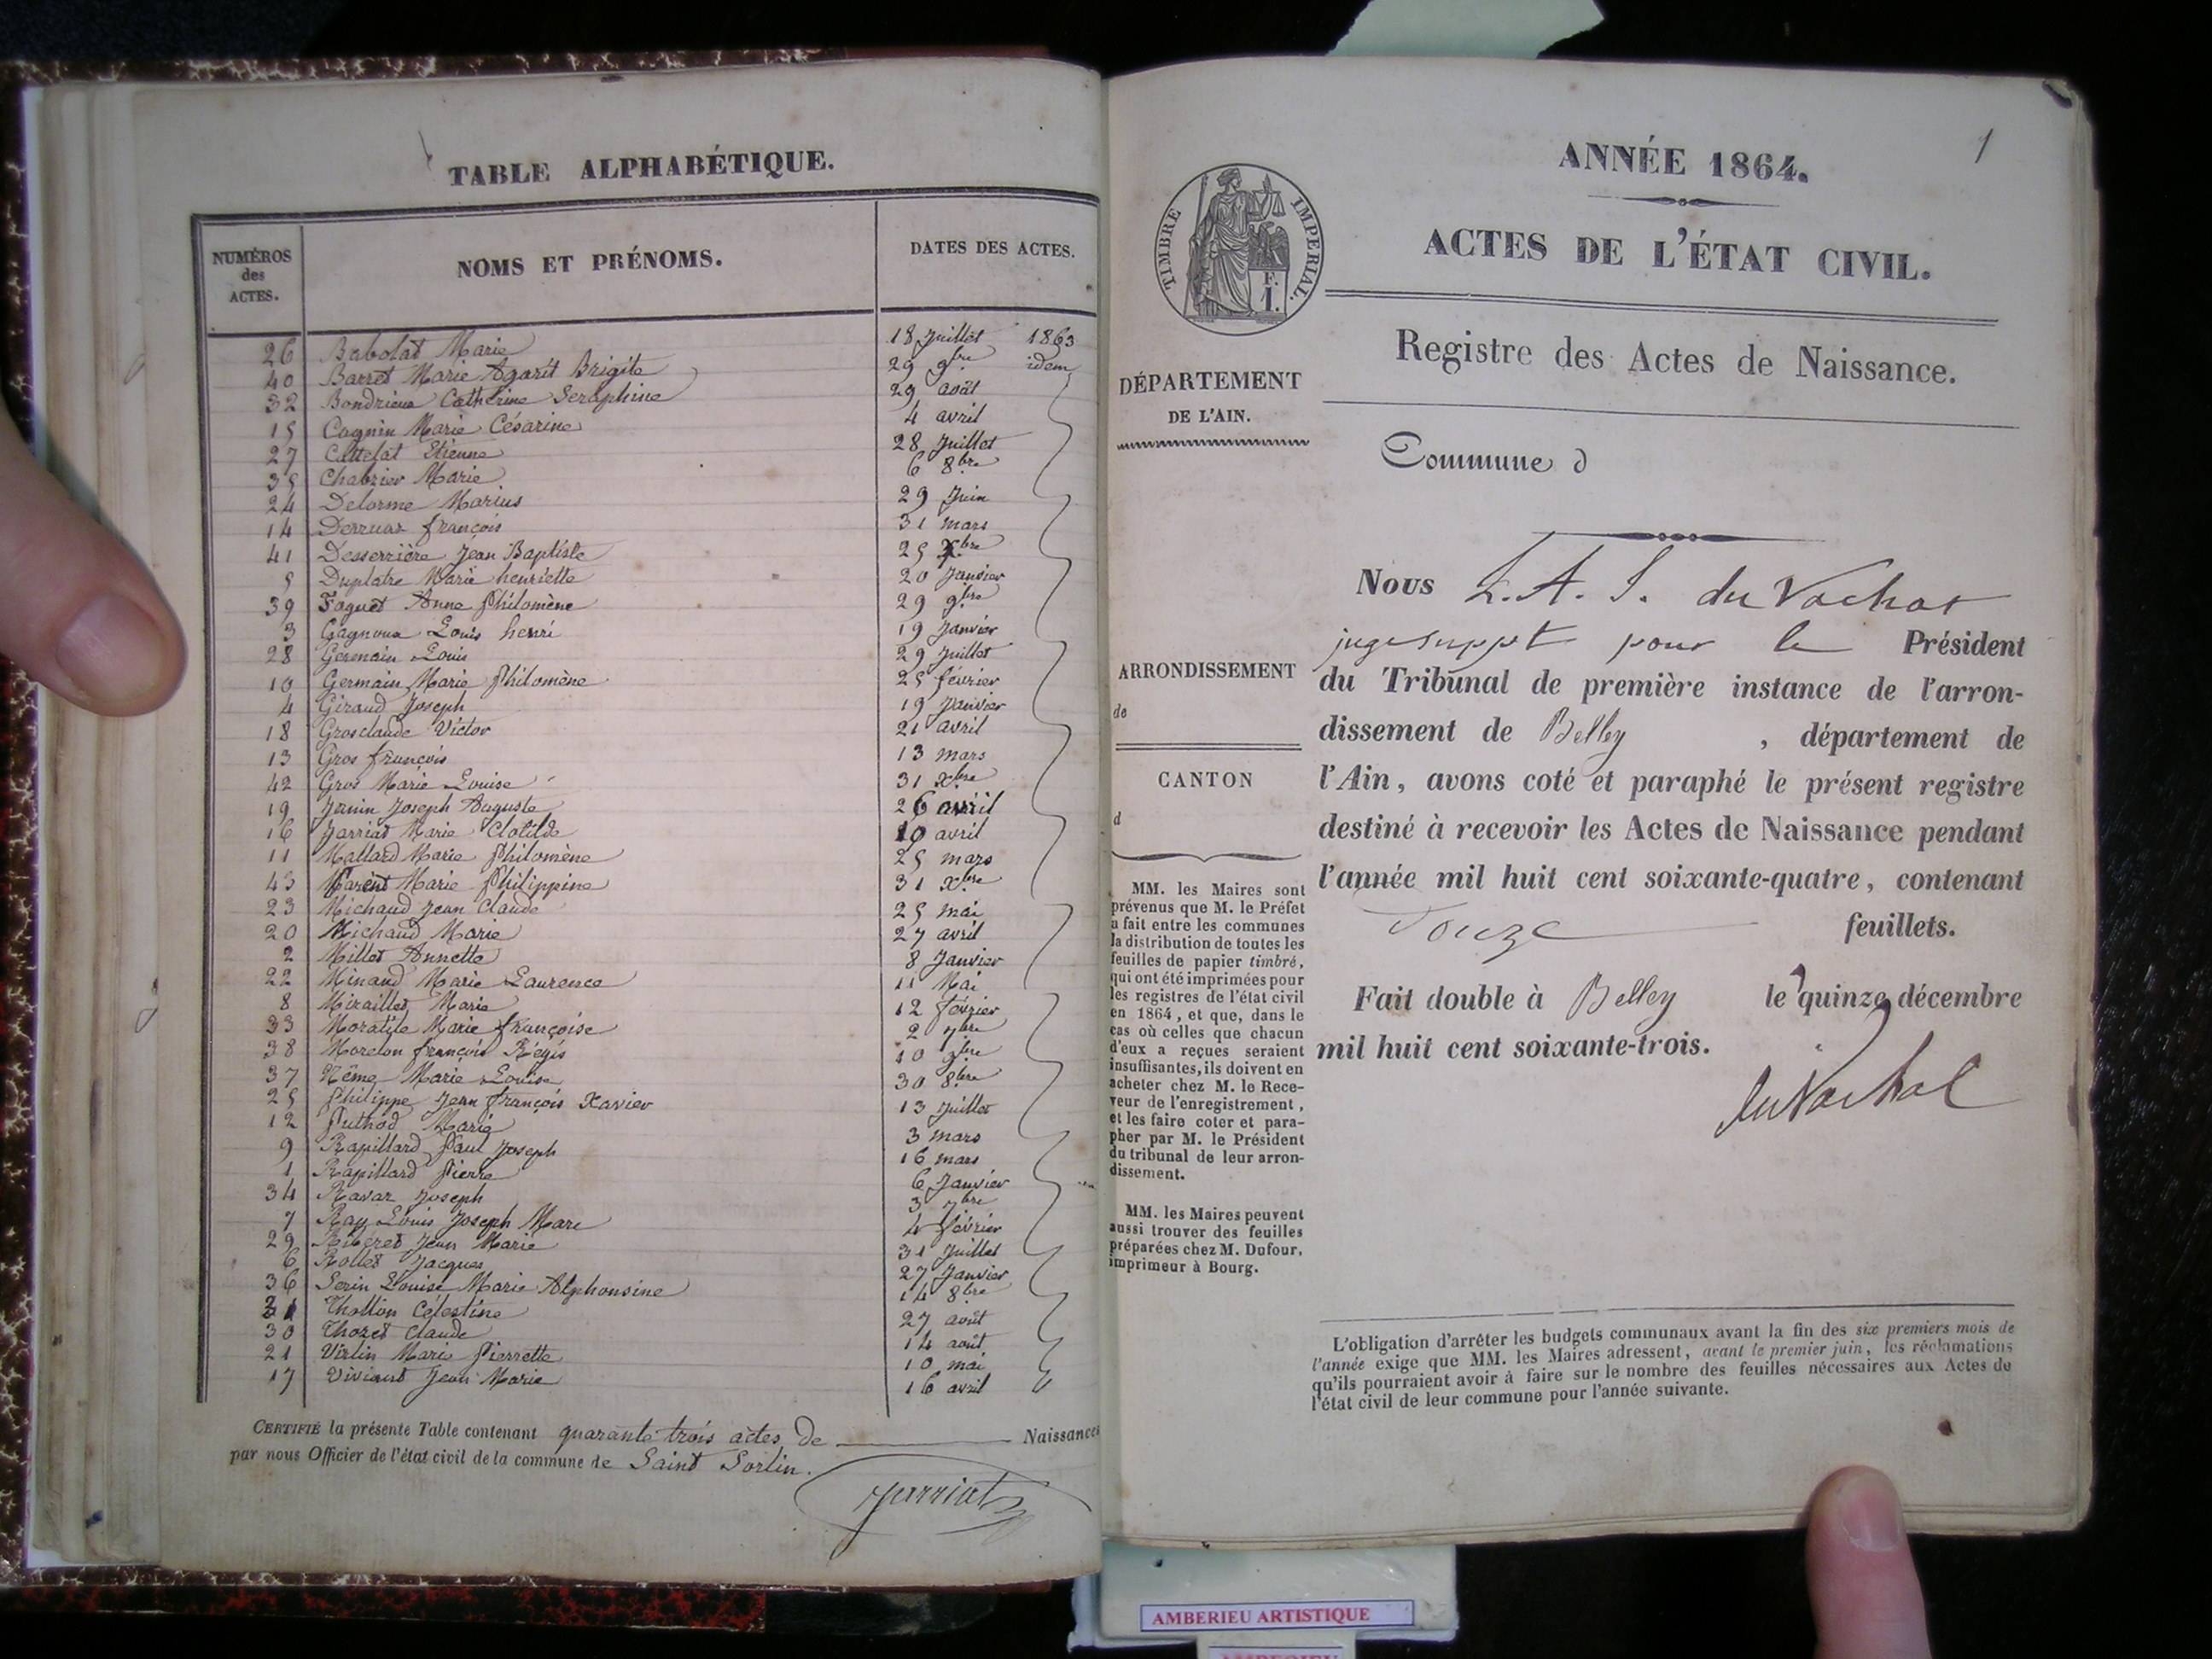 TABLE ALPHABÉTIQUE.
NUMÉROS des ACTES.
NOMS ET PRÉNOMS.
DATES DES ACTES.
26 Babolat Marie 18 Juillet 1863
40 Barret Marie Agarit Brigite 29 9bre idem
32 Bondrieux Catherine Séraphine 29 août
15 Cagnin Marie Césarine 4 avril
27 Cattelat Etienne 28 Juillet
35 Chabrier Marie 6 8bre
24 Delorme Marius 29 Juin
14 Derruaz françois 31 mars
41 Desserrière Jean Baptiste 25 Xbre
5 Duplatre Marie henriette 20 Janvier
39 Foguet Anne Philomène 29 9bre
3 Gagnoux Louis henri 19 Janvier
28 Germain Louis 29 Juillet
10 Germain Marie Philomène 25 février
4 Giraud Joseph 19 Janvier
18 Grosclaude Victor 21 avril
13 Gros françois 13 mars
42 Gros Marie Louise 31 Xbre
19 Janin Joseph Auguste 26 avril
16 Jarriat Marie Clotilde 10 avril
11 Mallard Marie Philomène 25 mars
43 Parent Marie Philippine 31 Xbre
23 Michaud Jean Claude 25 mai
20 Michaud Marie 27 avril
2 Millet Annette 8 Janvier
22 Minaud Marie Laurence 11 Mai
8 Miraillet Marie 12 février
33 Moratile Marie françoise 2 7bre
38 Morelon françois Régis 10 9bre
37 Nême Marie Louise 30 8bre
25 Philippe Jean françois Xavier 13 Juillet
12 Puthod Marie 3 mars
9 Rapillard Paul Joseph 16 mars
1 Rapillard Pierre 6 Janvier
34 Ravaz Joseph 3 7bre
7 Ray Louis Joseph Marc 4 février
29 Riberet Jean Marie 31 Juillet
6 Rollet Jacques 27 Janvier
36 Serin Louise Marie Alphonsine 14 8bre
31 Thollon Célestine 27 août
30 Thozet Claude 14 août
21 Virlin Marie Pierrette 10 mai
17 Viviant Jean Marie 16 avril
CERTIFIÉ la présente Table contenant quarante trois actes de Naissances
par nous Officier de l'état civil de la commune de Saint Sorlin.
Jarriat
1
ANNÉE 1864.
ACTES DE L'ÉTAT CIVIL.
TIMBRE IMPERIAL.
F.
1.
Registre des Actes de Naissance.
DÉPARTEMENT
DE L'AIN.
Commune d
ARRONDISSEMENT
de
CANTON
d
MM. les Maires sont
prévenus que M. le Préfet
a fait entre les communes
la distribution de toutes les
feuilles de papier timbré,
qui ont été imprimées pour
les registres de l'état civil
en 1864, et que, dans le
cas où celles que chacun
d'eux a reçues seraient
insuffisantes, ils doivent en
acheter chez M. le Rece-
veur de l'enregistrement,
et les faire coter et para-
pher par M. le Président
du tribunal de leur arron-
dissement.
MM. les Maires peuvent
aussi trouver des feuilles
préparées chez M. Dufour,
imprimeur à Bourg.
Nous L. A. S. du Vachat
juge suppt pour le Président
du Tribunal de première instance de l'arron-
dissement de Belley, département de
l'Ain, avons coté et paraphé le présent registre
destiné à recevoir les Actes de Naissance pendant
l'année mil huit cent soixante-quatre, contenant
feuillets.
Fait double à Belley le quinze décembre
mil huit cent soixante-trois.
du Vachat
L'obligation d'arrêter les budgets communaux avant la fin des six premiers mois de
l'année exige que MM. les Maires adressent, avant le premier juin, les réclamations
qu'ils pourraient avoir à faire sur le nombre des feuilles nécessaires aux Actes de
l'état civil de leur commune pour l'année suivante.
AMBERIEU ARTISTIQUE